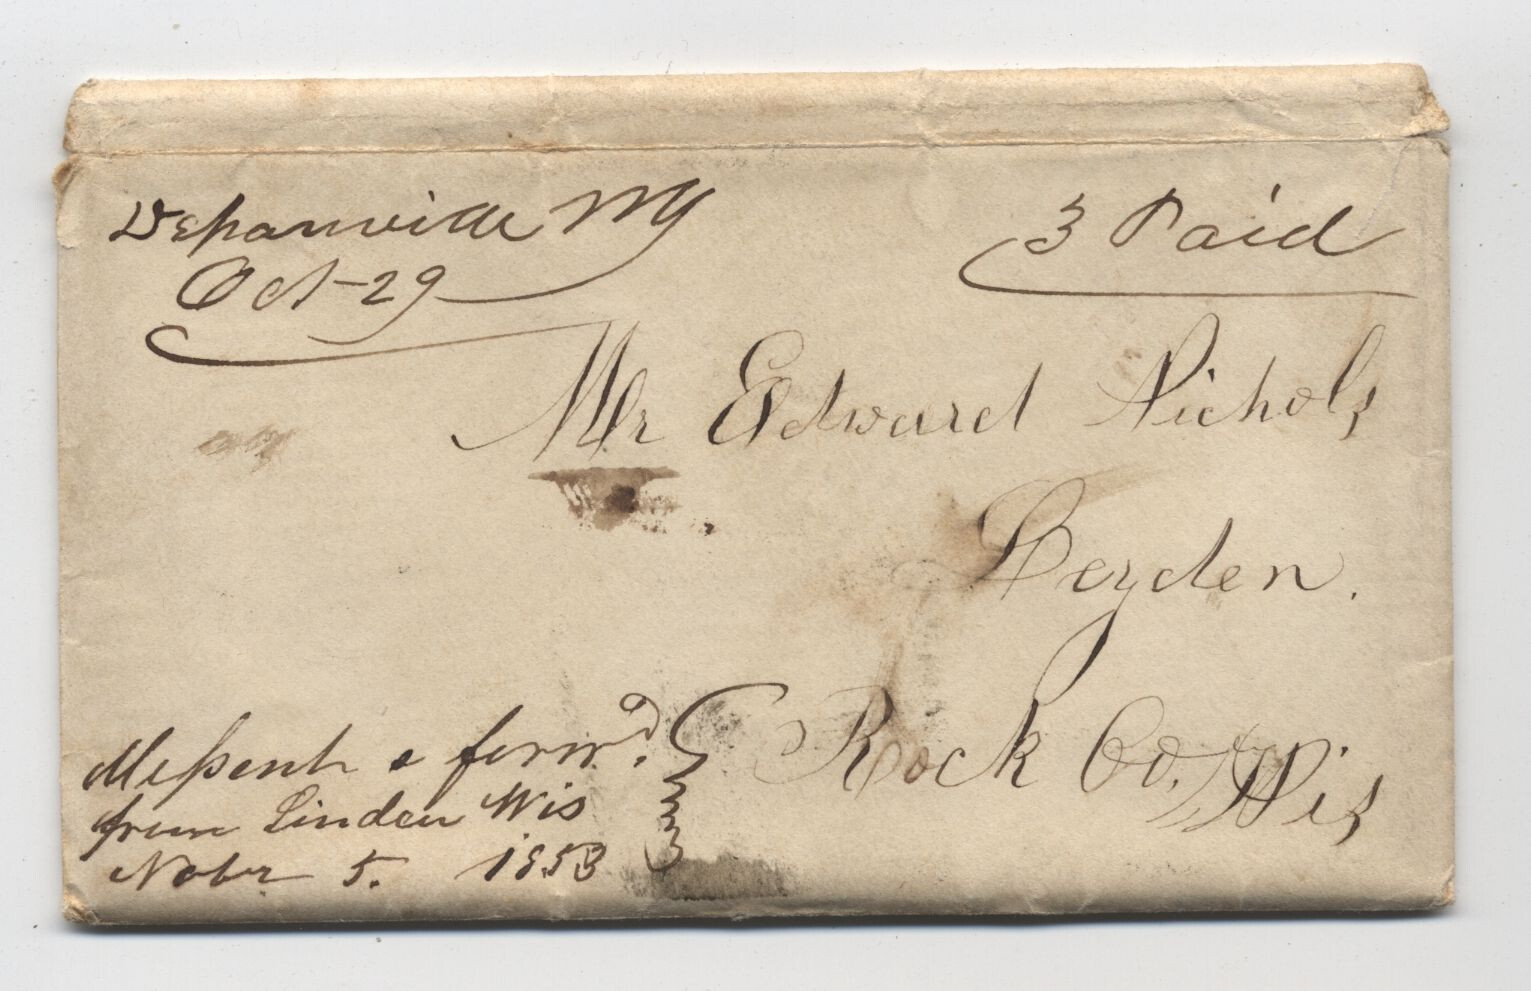 Depauville NY
Oct 29
3 Paid
Mr Edward Nichols
Leyden.
Rock Co. Wis
Missent & forwd.
from Linden Wis
Nobr 5. 1853